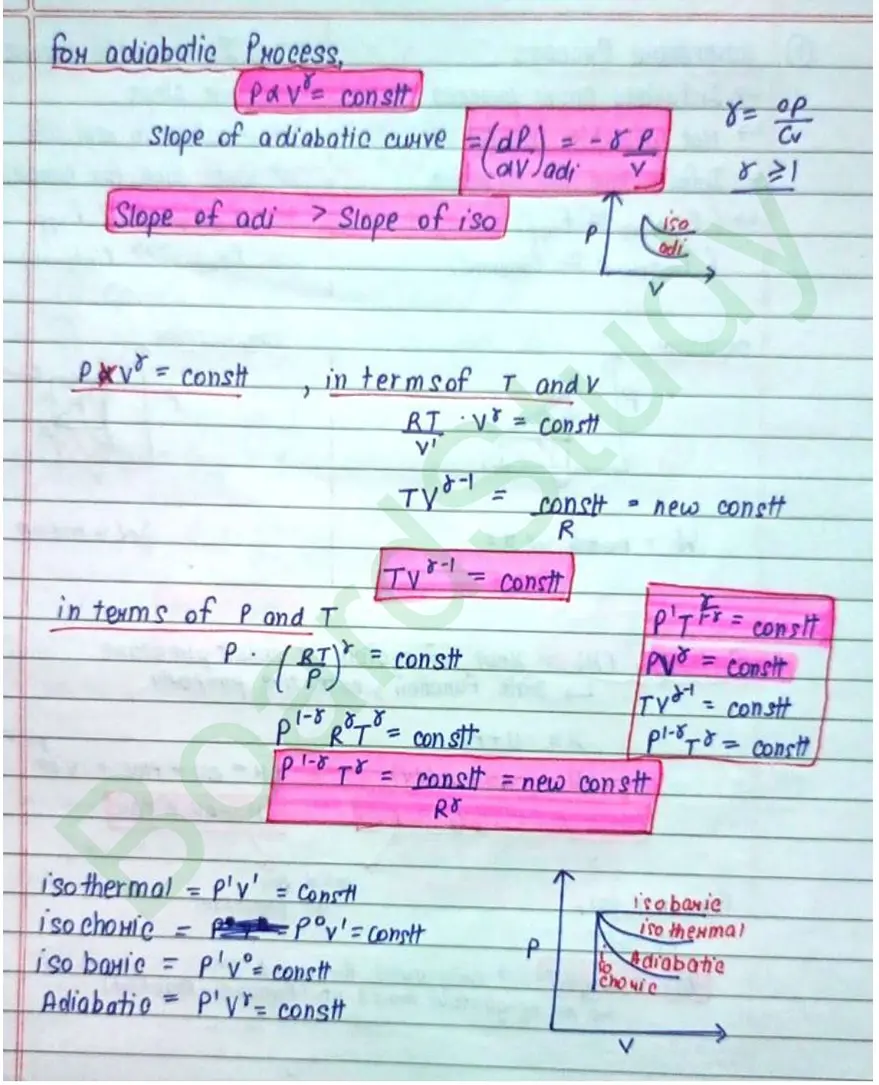 for adiabatic Process,
P α V^γ = constt
Slope of adiabatic curve = (dP/dV)adi = -γ P/V
γ = CP/Cv
γ ≥ 1
Slope of adi > Slope of iso
P
iso
adi
V
P V^γ = constt , in terms of T and V
RT/V' · V^γ = constt
TV^γ-1 = constt/R = new constt
TV^γ-1 = constt
in terms of P and T
P · (RT/P)^γ = constt
P^1-γ R^γ T^γ = constt
P^1-γ T^γ = constt/R^γ = new constt
P'T^γ/1-γ = constt
PV^γ = constt
TV^γ-1 = constt
P^1-γ T^γ = constt
isothermal = P'V' = constt
isochoric = P°V' = constt
isobaric = P'V° = constt
Adiabatic = P'V^γ = constt
P
isobaric
isothermal
Adiabatic
iso
choric
V
BoardStudy